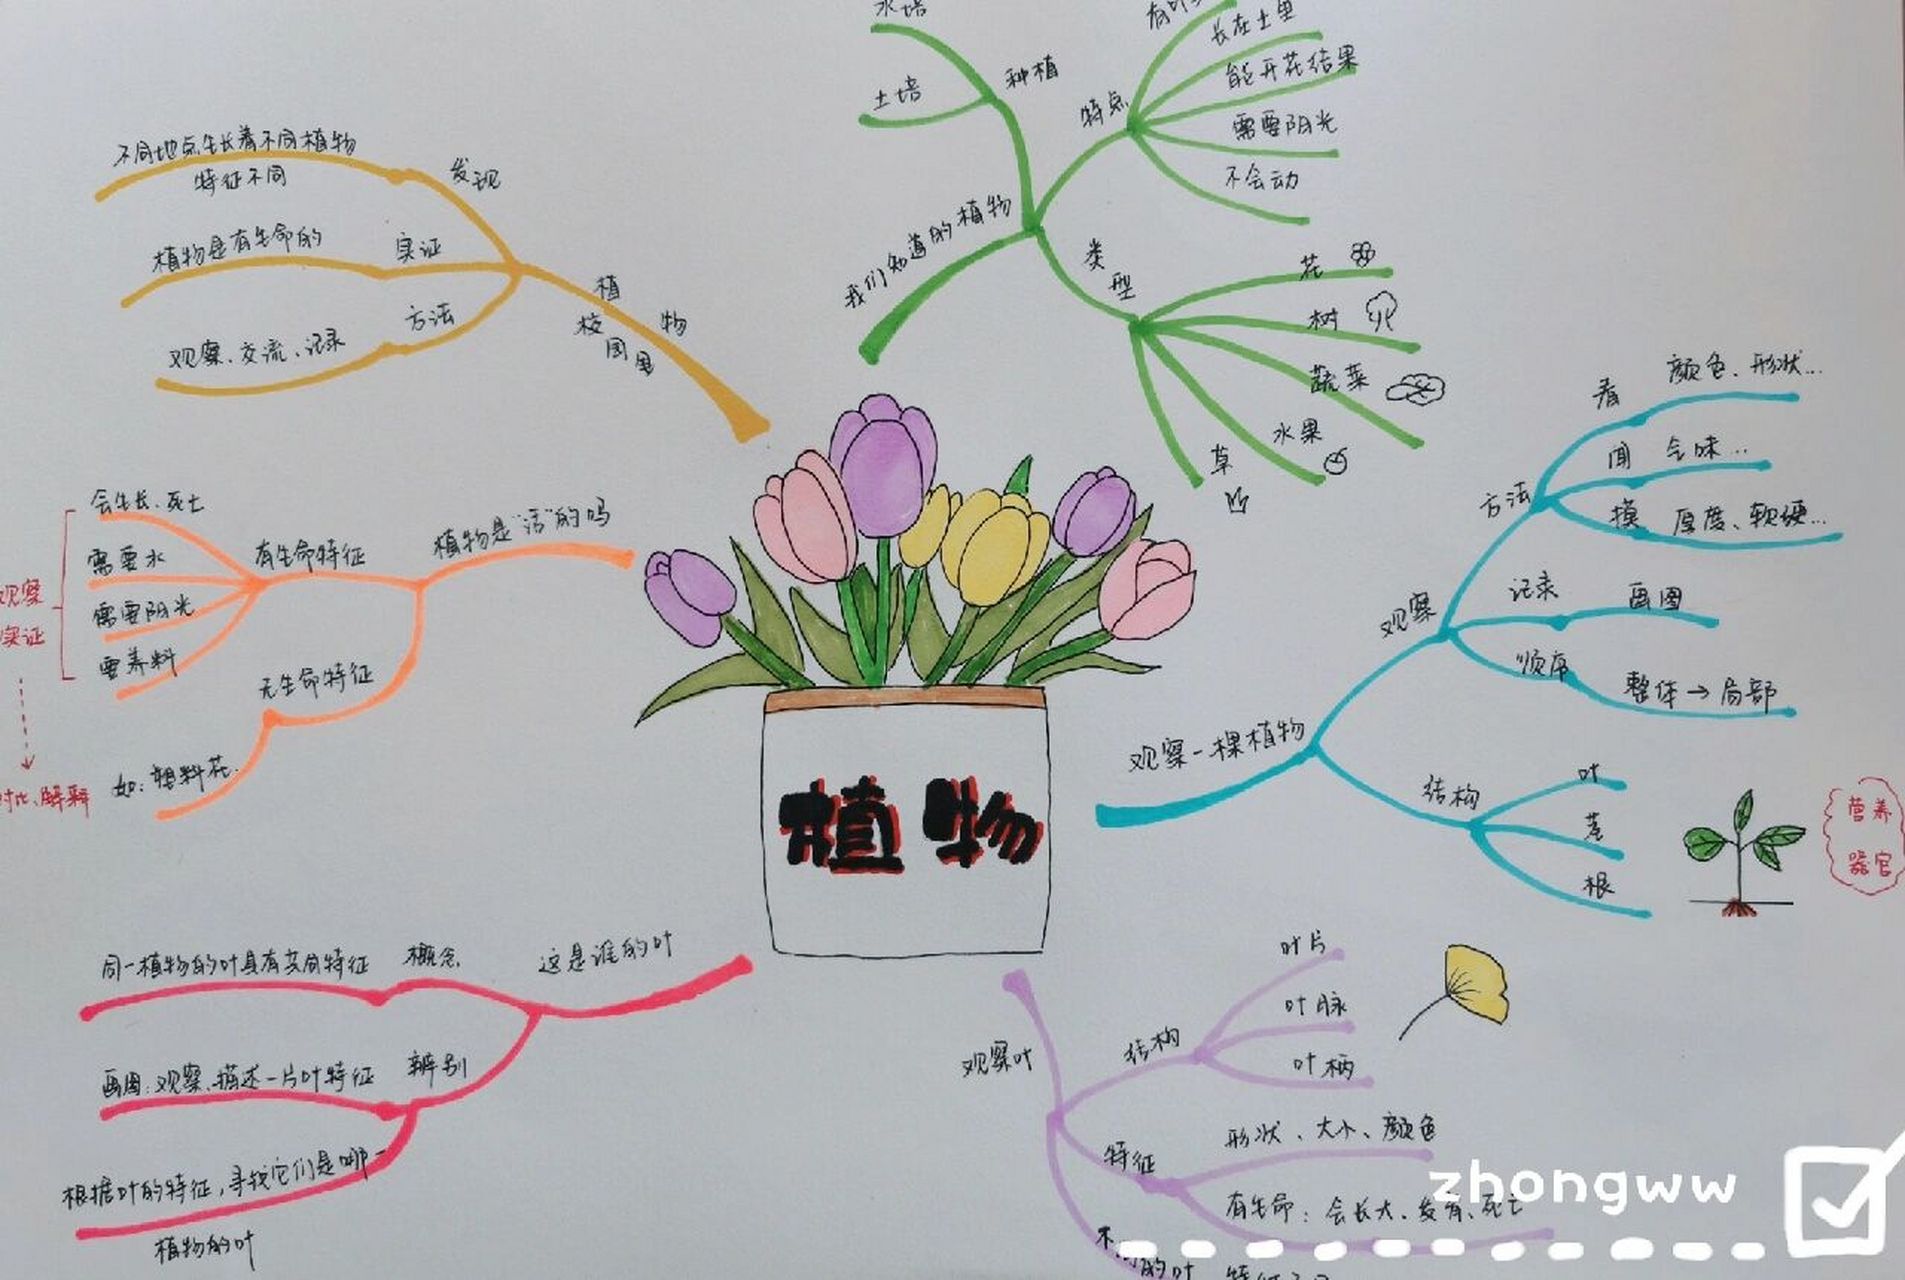 植物
我们知道的植物
种植
水培
土培
特点
长在土里
能开花结果
需要阳光
不会动
类型
花
树
蔬菜
水果
草
观察一棵植物
观察
方法
看
颜色、形状...
闻
气味...
摸
厚度、软硬...
记录
画图
顺序
整体→局部
结构
叶
茎
根
营养
器官
观察叶
结构
叶片
叶脉
叶柄
特征
形状、大小、颜色
有生命:会长大、发育、死亡
的叶
这是谁的叶
概念
同一植物的叶具有共同特征
辨别
画图:观察、描述一片叶特征
根据叶的特征,寻找它们是哪一
植物的叶
植物是“活”的吗
有生命特征
会生长、死亡
需要水
需要阳光
需养料
观察
实证
对比、解释
无生命特征
如:塑料花.
校园里
植物
发现
不同地点生长着不同植物
特征不同
实证
植物是有生命的
方法
观察、交流、记录
zhongww